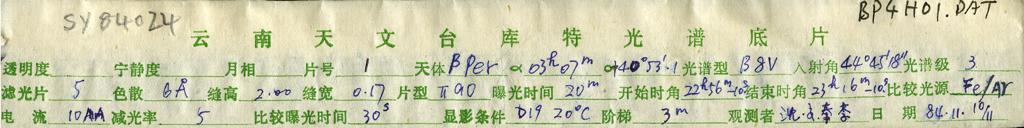 SY84024 BP4H01.DAT
云南天文台库特光谱底片
透明度 宁静度 月相 片号 1 天体 β Per α 03h 07m +40°53'.1 光谱型 B8V 入射角 44°45'18" 光谱级 3
滤光片 5 色散 6Å 缝高 2.00 缝宽 0.17 片型 Π90 曝光时间 20m 开始时角 22h56m10s 结束时角 23h16m10s 比较光源 Fe/Ar
电流 10 减光率 5 比较曝光时间 30s 显影条件 D19 20°C 阶梯 3m 观测者 日期 84.11.10/11